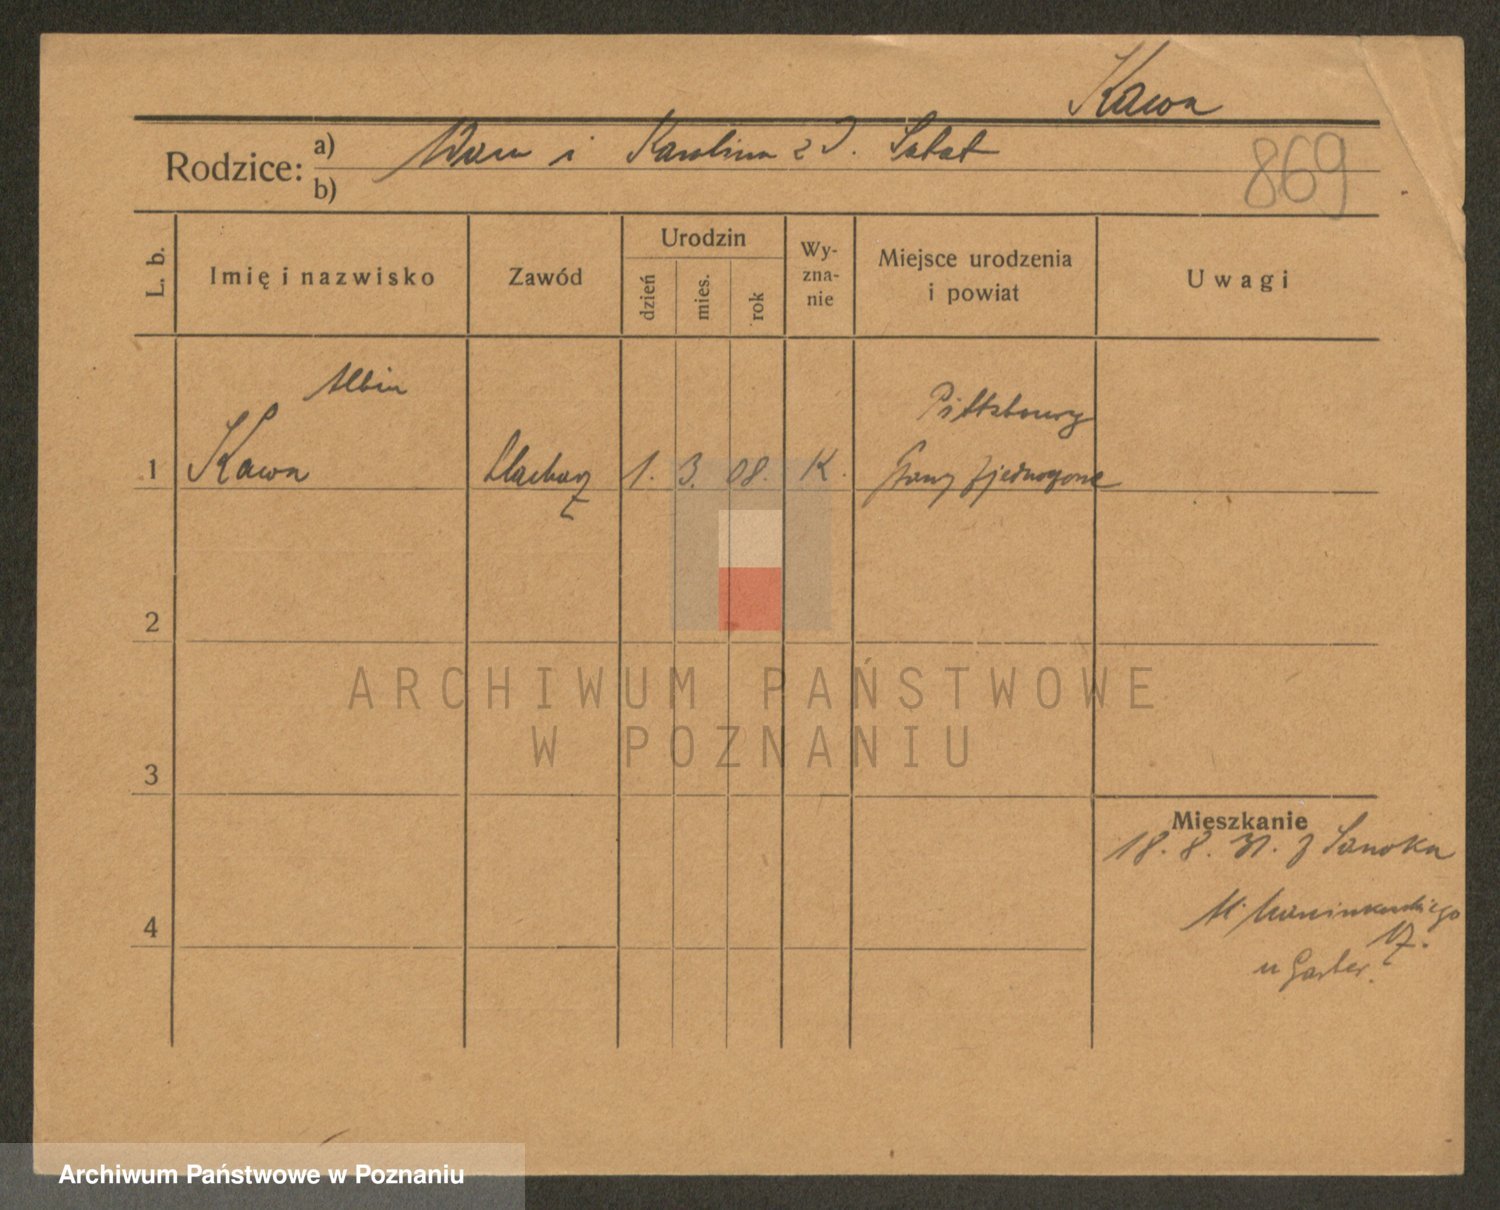 Kawa
869
Rodzice: a) i Karolina z d. Sałat
b)
L. b.
Imię i nazwisko
Zawód
Urodzin
dzień
mies.
rok
Wy-
zna-
nie
Miejsce urodzenia
i powiat
Uwagi
Albin
Pittsbourg
1 Kawa 1. 3. 08. K. Stany Zjednoczone
2
ARCHIWUM PAŃSTWOWE
W POZNANIU
3
Mieszkanie
18. 8. 31. z Sanoka
4
17.
u
Archiwum Państwowe w Poznaniu